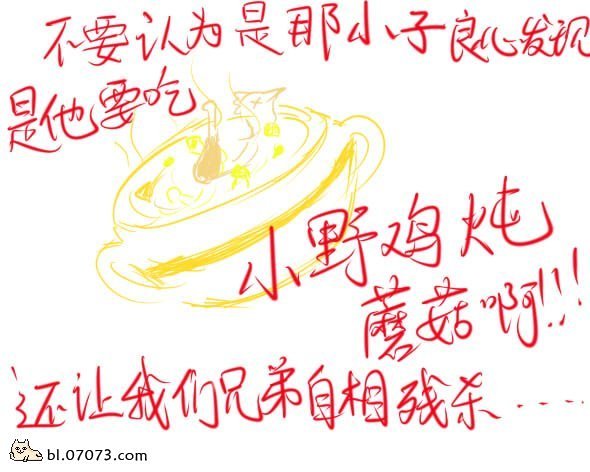 不要认为是那小子良心发现
是他要吃
小野鸡炖
蘑菇啊!!!
还让我们兄弟自相残杀·····
bl.07073.com